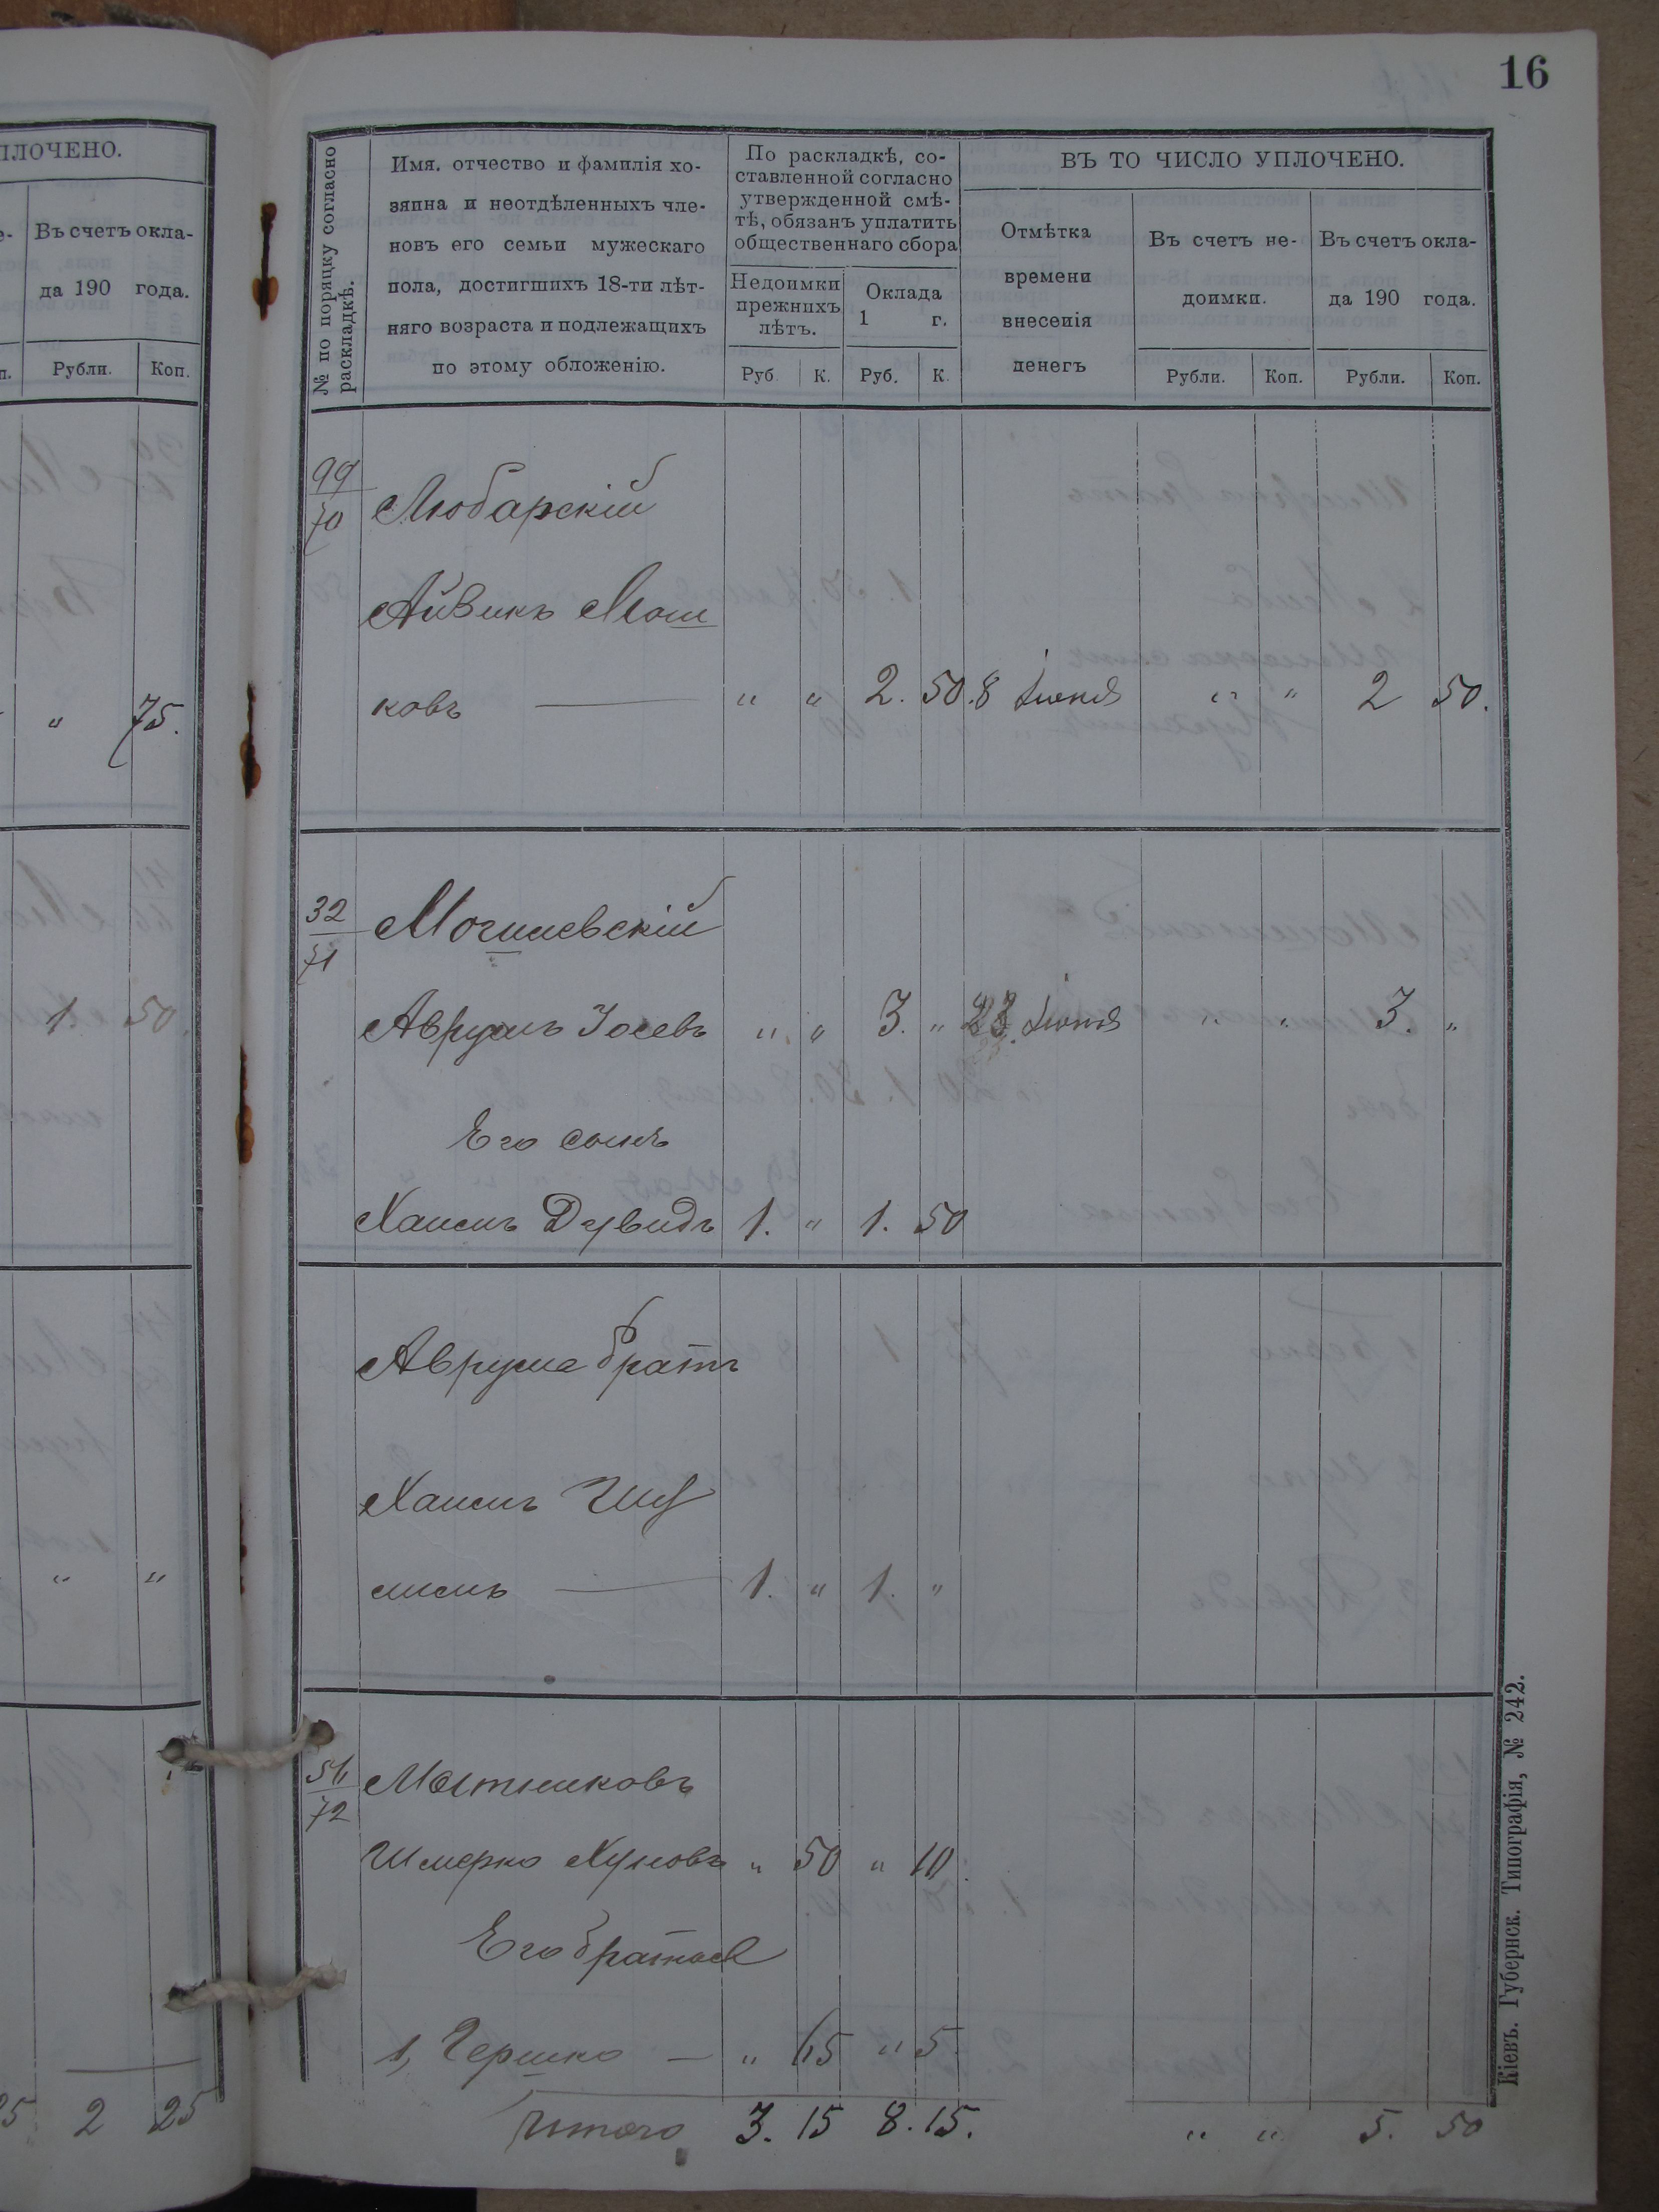 16
ПЛОЧЕНО.
Въ счетъ окла-
да 190 года.
Рубли. Коп.
" 75.
1. 50
" "
2 25
№ по порядку согласно
раскладкѣ.
Имя, отчество и фамилія хо-
зяина и неотдѣленныхъ чле-
новъ его семьи мужескаго
пола, достигшихъ 18-ти лѣт-
няго возраста и подлежащихъ
по этому обложенію.
По раскладкѣ, со-
ставленной согласно
утвержденной смѣ-
тѣ, обязанъ уплатить
общественнаго сбора
Недоимки
прежнихъ
лѣтъ.
Руб. К.
Оклада
1 г.
Руб. К.
ВЪ ТО ЧИСЛО УПЛОЧЕНО.
Отмѣтка
времени
внесенія
денегъ
Въ счетъ не-
доимки.
Рубли. Коп.
Въ счетъ окла-
да 190 года.
Рубли. Коп.
99
70 Любарскій
Айзикъ Мош
ковъ — " " 2. 50. 8 Іюня " " 2 50.
32
71 Могилевскій
Аврумъ Іосевъ " " 3. " 23 Іюня " " 3. "
Его сынъ
Хаимъ Дувидъ 1. " 1. 50
Аврума братъ
Хаимъ
1. " 1. "
72 Мытниковъ
Шмерко " 50 " 10.
Его братья
1, Гершко — " 65 " 5.
Итого 3. 15 8. 15. " " 5. 50
Кіевъ. Губернск. Типографія, № 242.